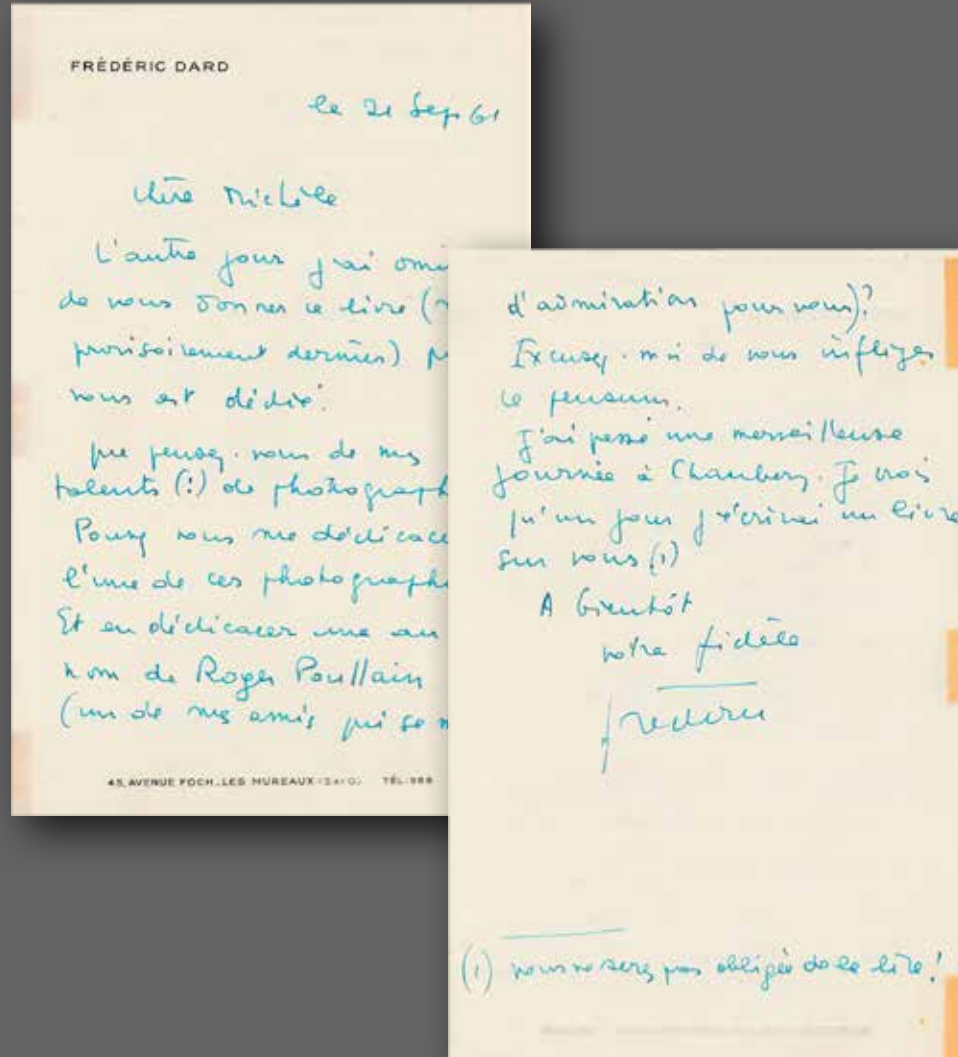 FRÉDÉRIC DARD
le 21 Sep 61
Chère Michèle
L'autre jour j'ai omi
de vous donner ce livre (
provisoirement dernier)
vous est dédié.
Que pensez-vous de mes
talents (!) de photograph
Pouvez vous me dédicace
l'une de ces photograph
Et en dédicacer une au
nom de Roger Poullain
(un de mes amis qui se m
45, AVENUE FOCH. LES MUREAUX (S.&O.) TÉL.
d'admiration pour vous)?
Excusez-moi de vous infliger
ce pensum.
J'ai passé une merveilleuse
journée à Chambery. Je crois
qu'un jour j'écrirai un livre
sur vous (1)
A bientôt
votre fidèle
Frédéric
(1) vous ne serez pas obligée de le lire!